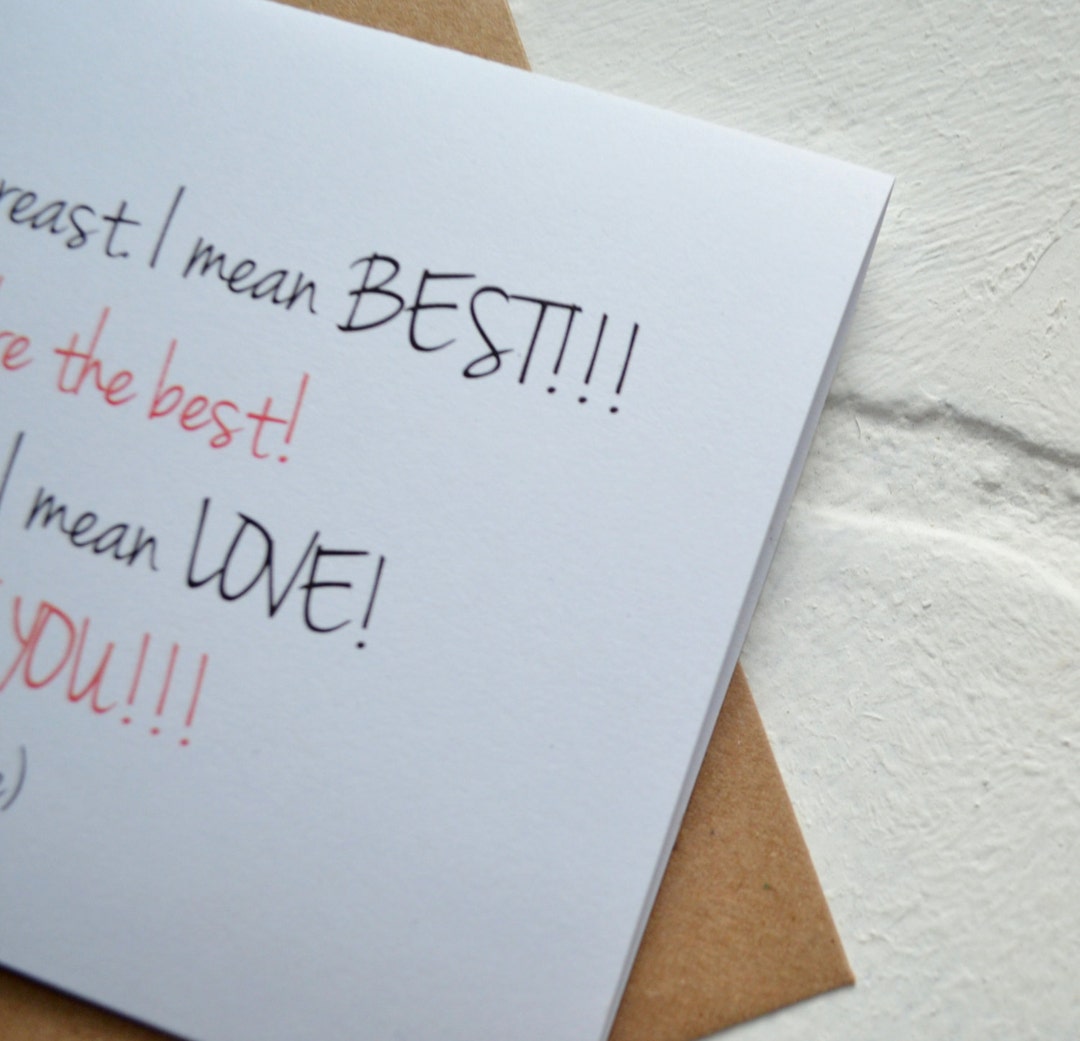 reast. I mean BEST!!!
re the best!
I mean LOVE!
YOU!!!
e)